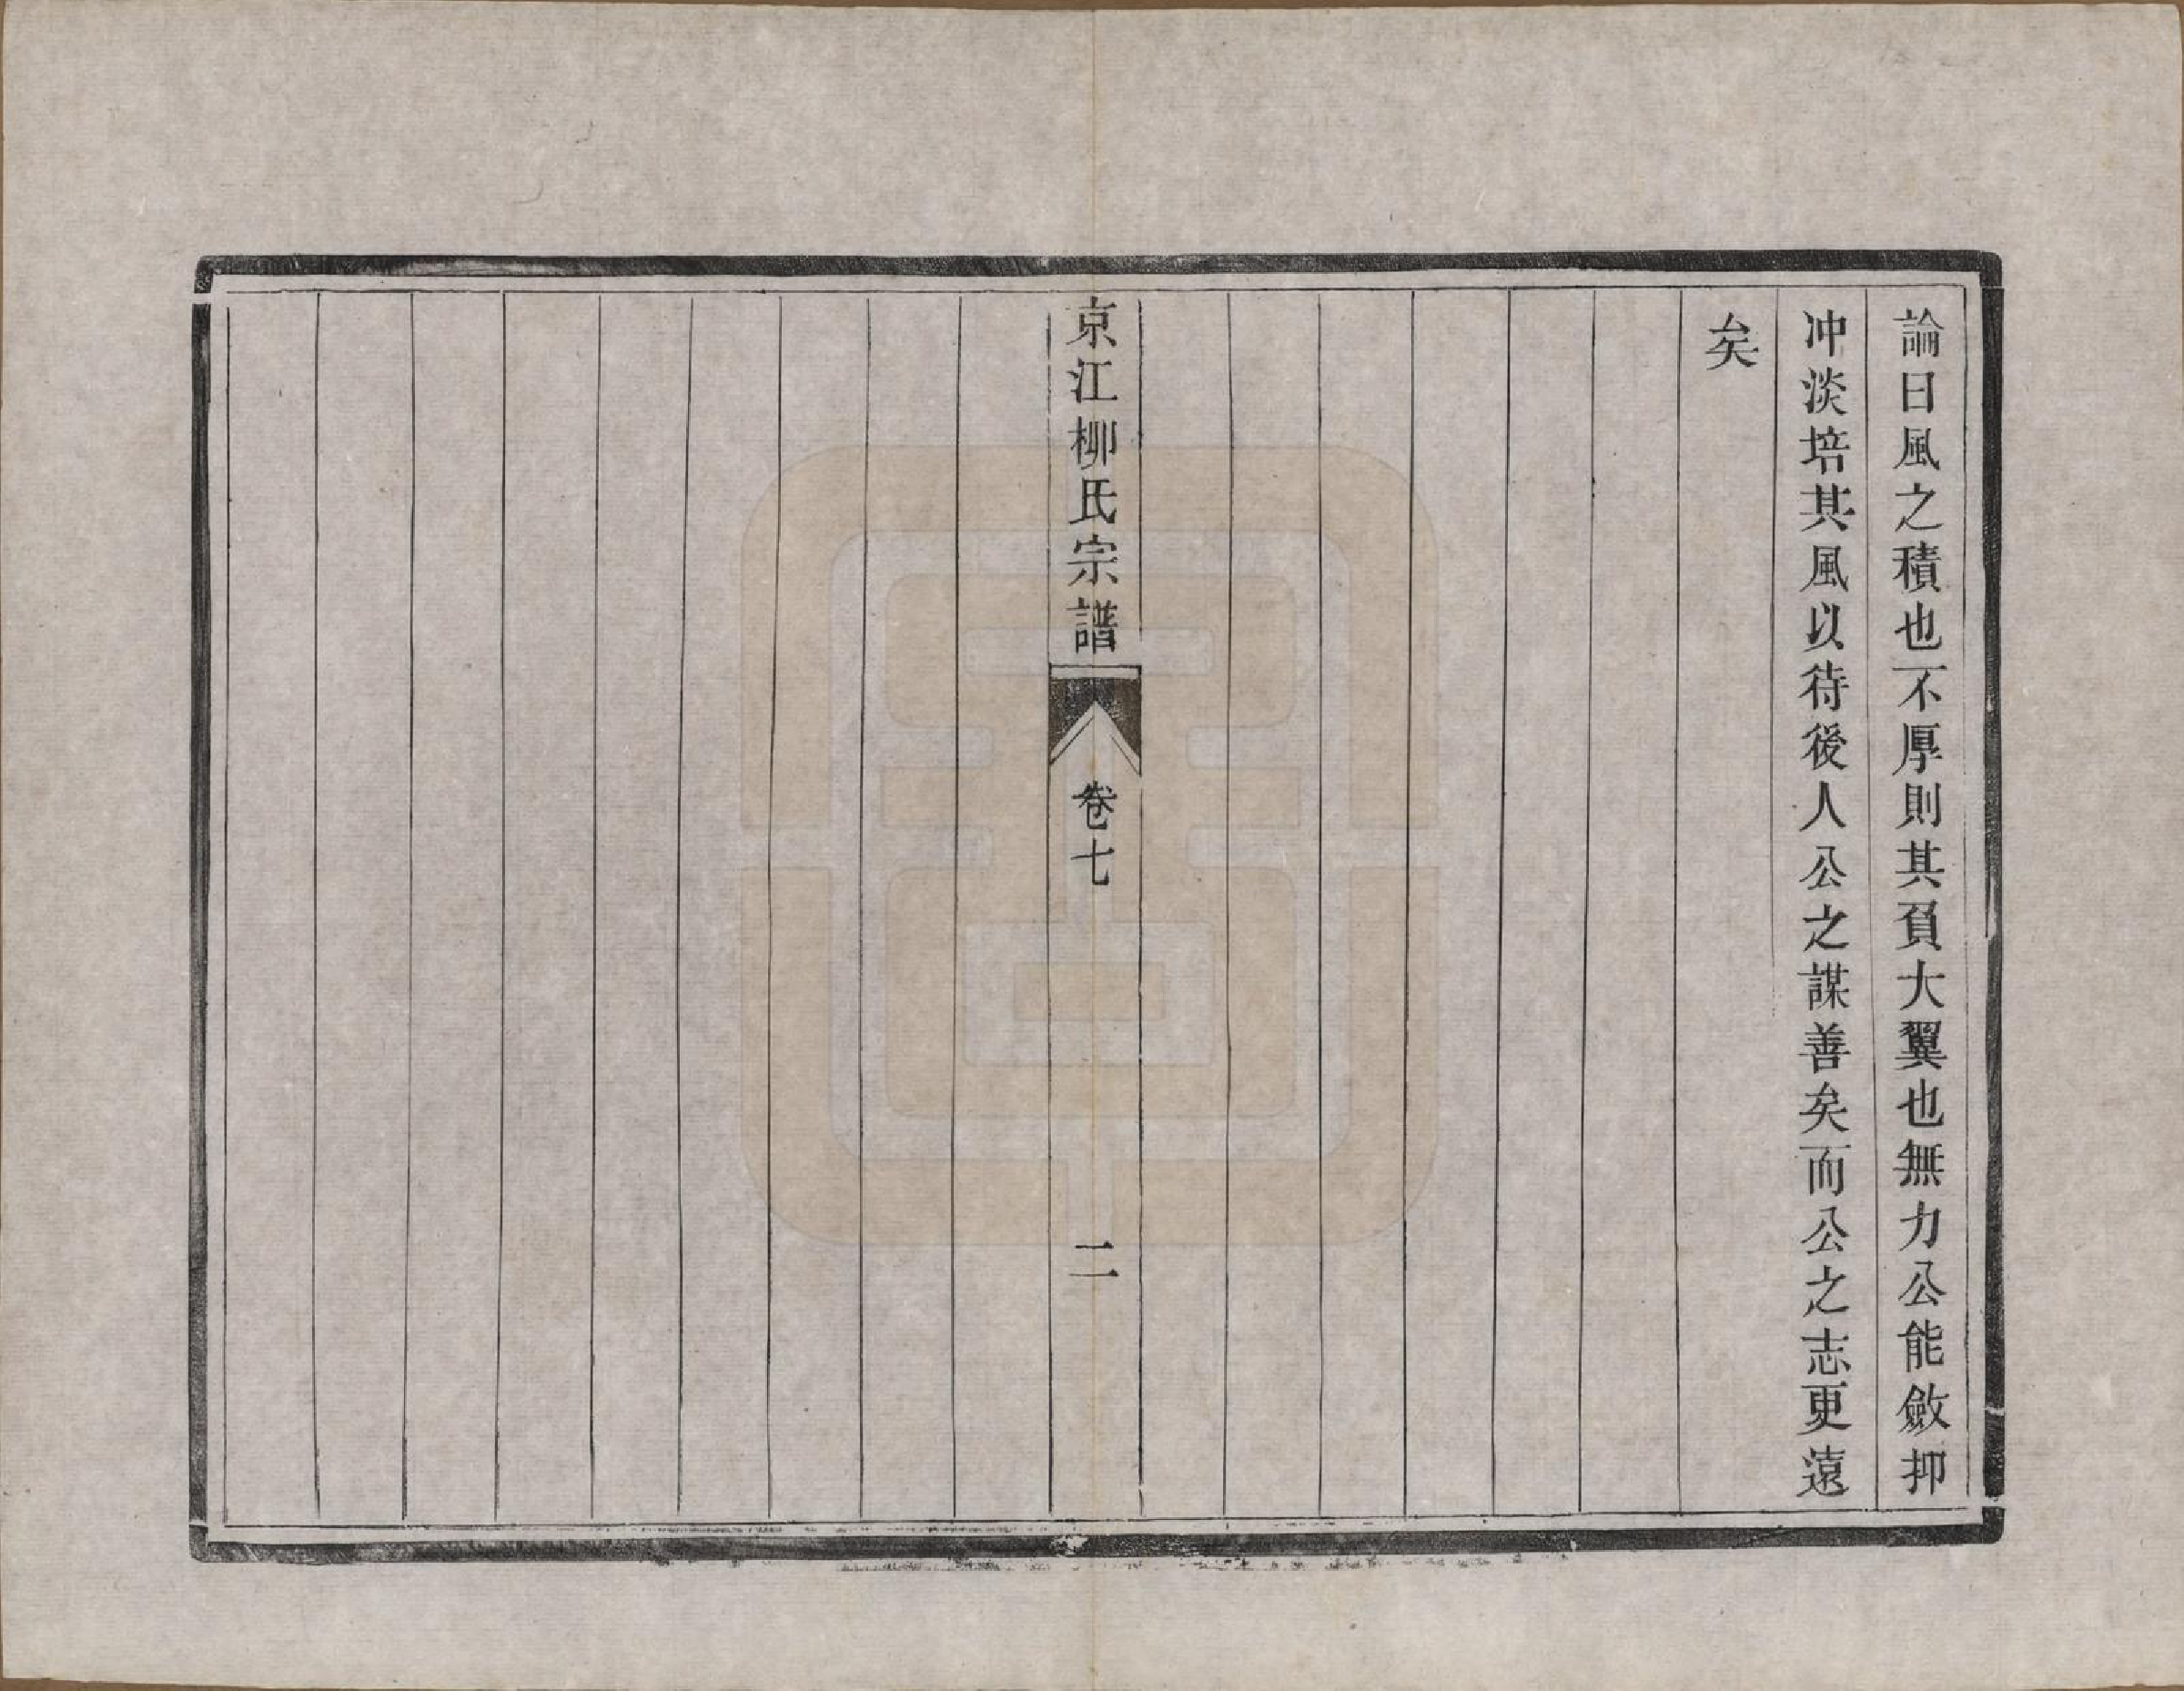 論曰風之積也不厚則其負大翼也無力公能斂抑
冲淡培其風以待後人公之謀善矣而公之志更遠
矣
京江柳氏宗譜
卷七
二